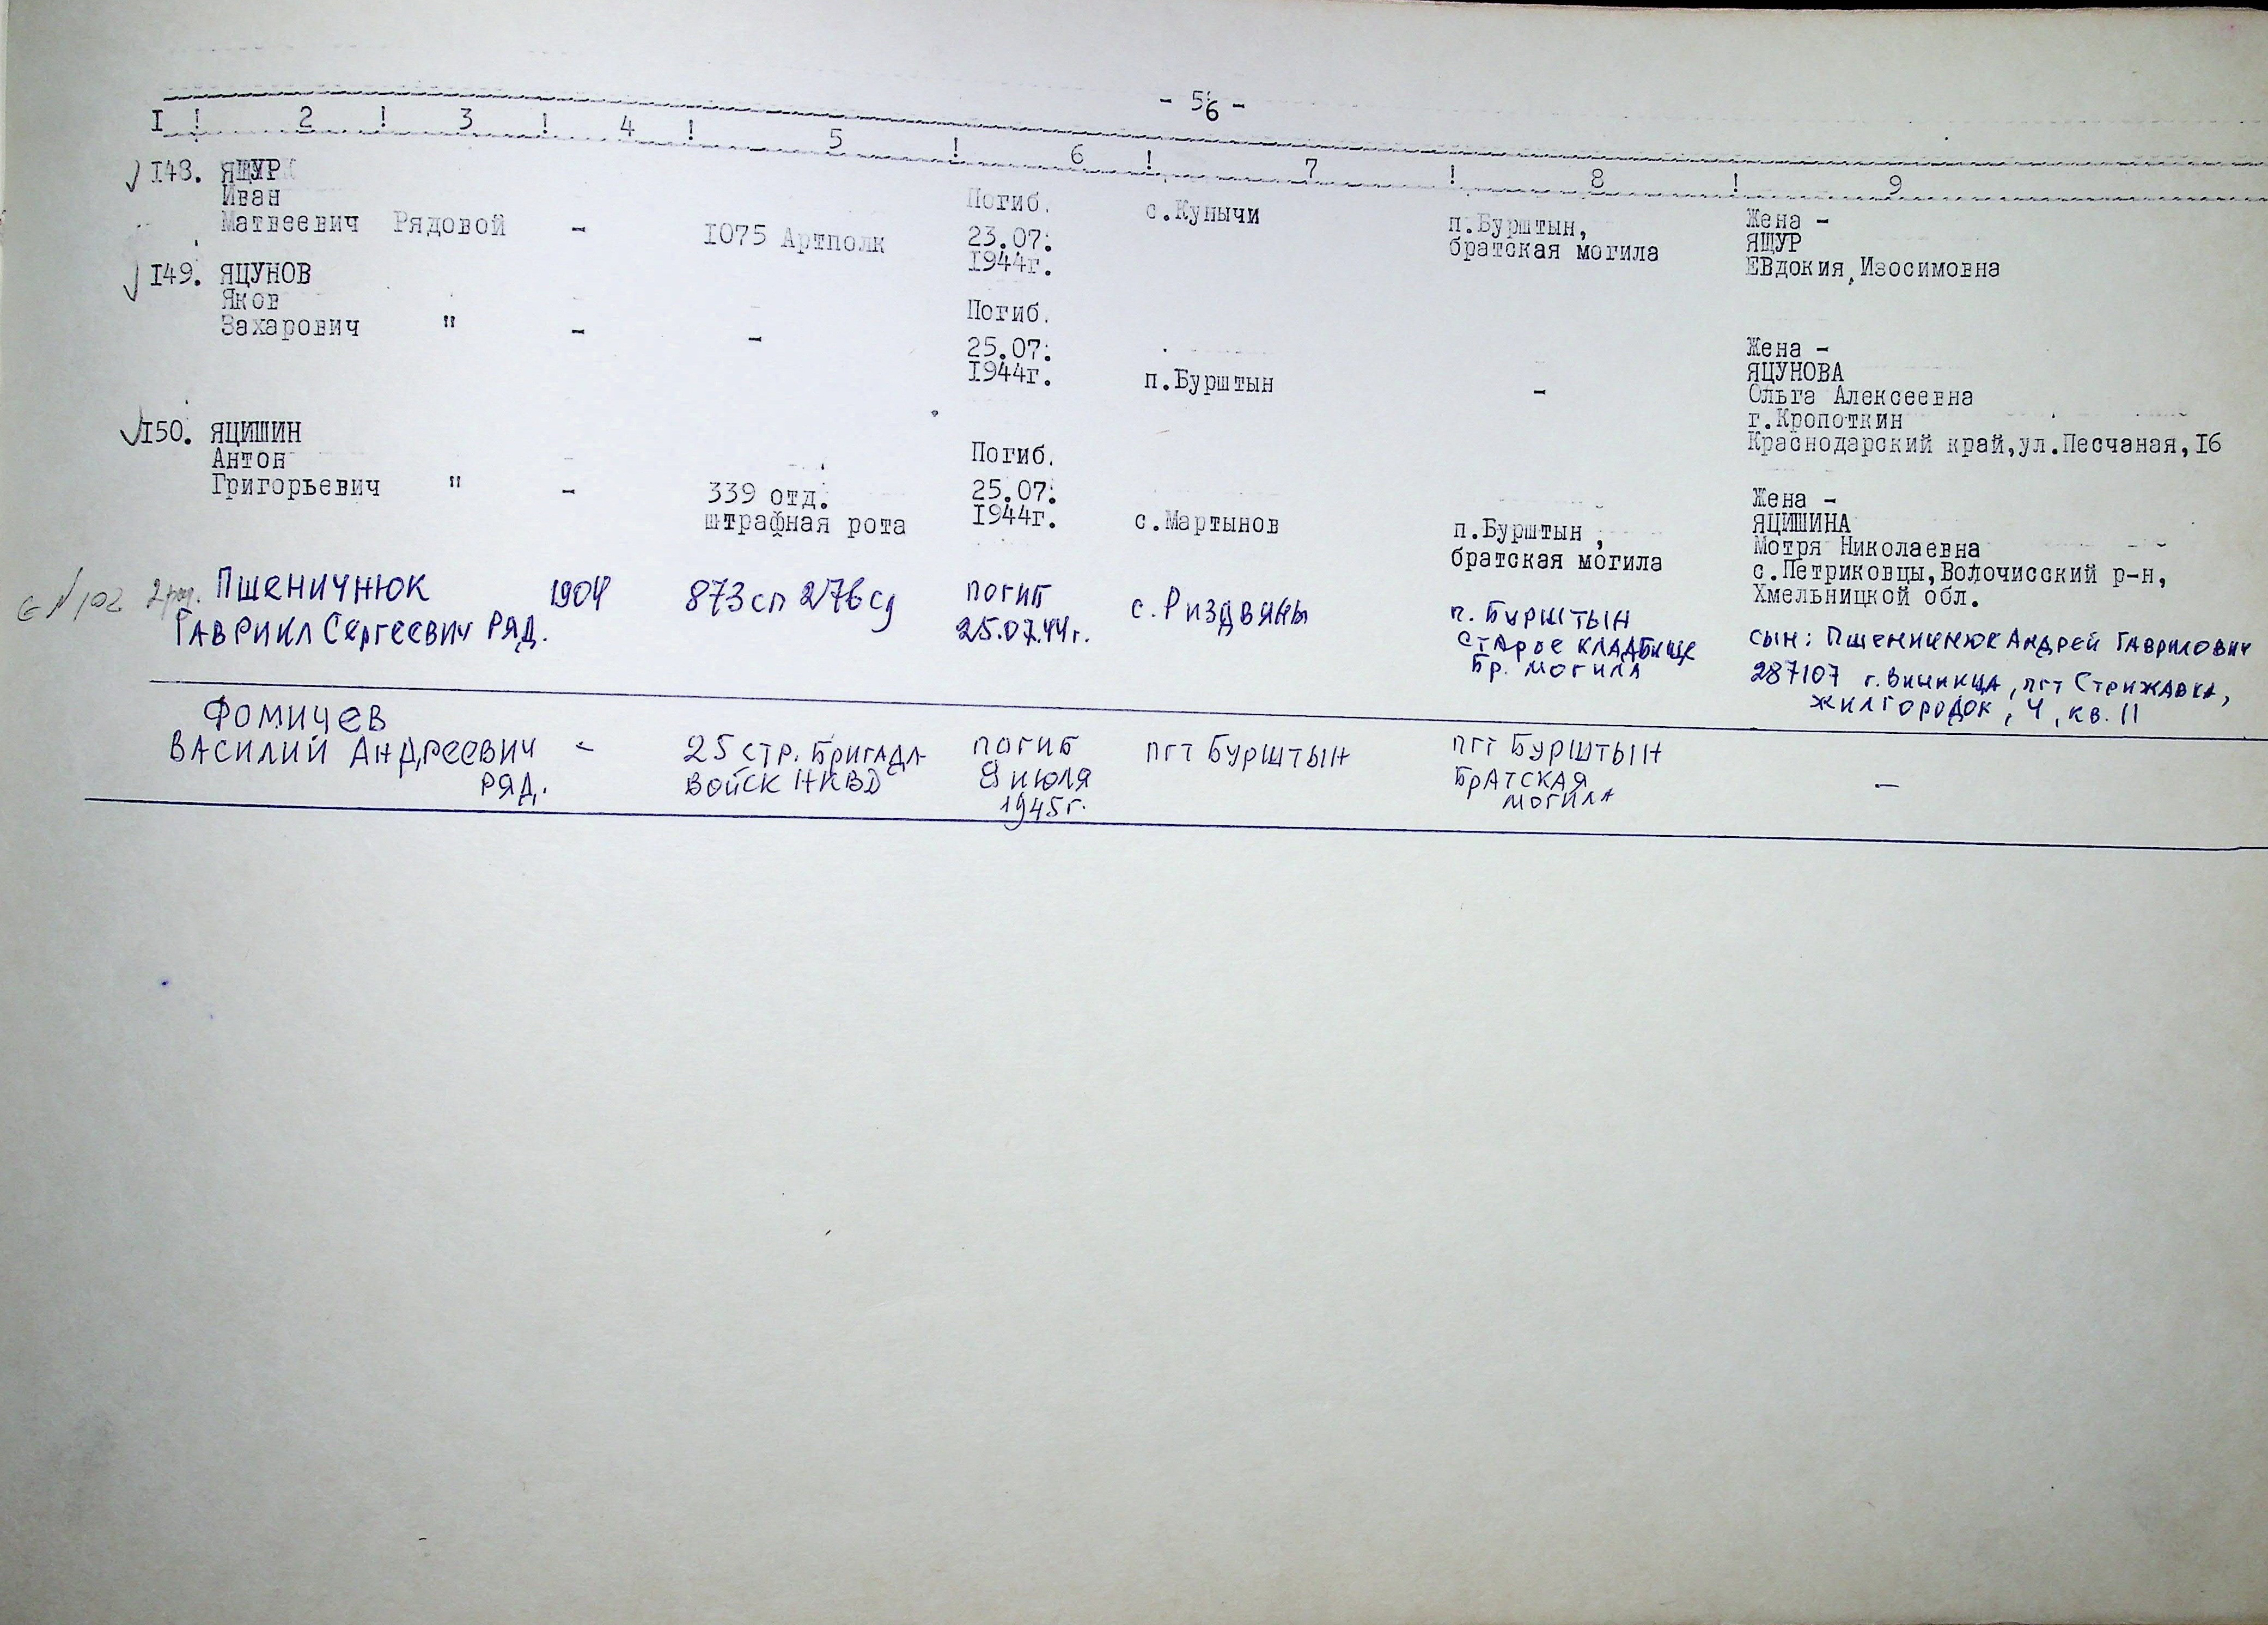 - 56 -
I ! 2 ! 3 ! 4 ! 5 ! 6 ! 7 ! 8 ! 9
148. ЯЩУР
Иван
Матвеевич Рядовой - 1075 Артполк
Погиб.
23.07.
1944г.
с.Куничи
п.Бурштын,
братская могила
Жена -
ЯЩУР
ЕВдокия Изосимовна
149. ЯЦУНОВ
Яков
Захарович " - -
Погиб.
25.07.
1944г.
п.Бурштын
-
Жена -
ЯЦУНОВА
Ольга Алексеевна
г.Кропоткин
Краснодарский край,ул.Песчаная,16
150. ЯЦИШИН
Антон
Григорьевич " -
339 отд.
штрафная рота
Погиб.
25.07.
1944г.
с.Мартынов
п.Бурштын ,
братская могила
Жена -
ЯЦИШИНА
Мотря Николаевна
с.Петриковцы,Волочисский р-н,
Хмельницкой обл.
Пшеничнюк
Гаврикл Сергеевич РЯД.
1904
873 сп 276 сд
погиб
25.07.44г.
с. Риздвяны
п. Бурштын
старое кладбище
бр. могила
сын: Пшеничнюк Андрей Гаврилович
287107 г. Винница, пгт Стрижавка,
жилгородок, 4, кв. 11
Фомичев
Василий Андреевич -
РЯД.
25 стр. бригада
войск НКВД
погиб
8 июля
1945г.
пгт Бурштын
пгт Бурштын
братская
могила
-